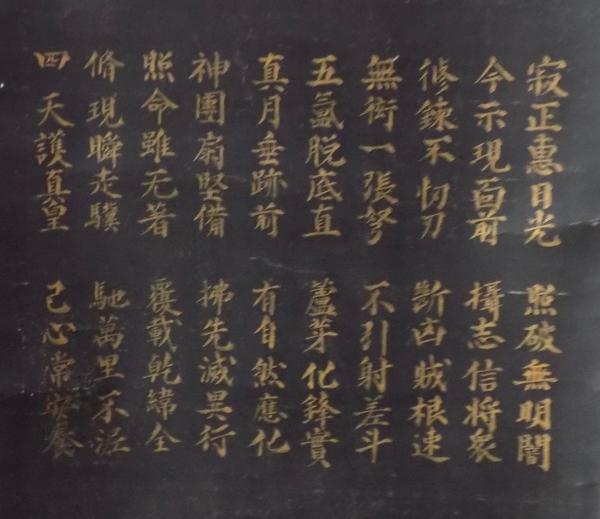 寂正惠日光 照破無明闇
今示現面前 攝志信将衆
修錬不切刀 断凶賊根速
無術一張弩 不引射差斗
五氣脱底直 蘆芽化鋒實
真月垂跡前 有自然應化
神團扇堅備 拂先滅異行
照命雖无著 覆載乾緯全
脩現瞬走驥 馳萬里不涯
四天護真皇 己心常 養